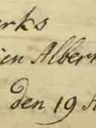 rks
in Alber
den 19